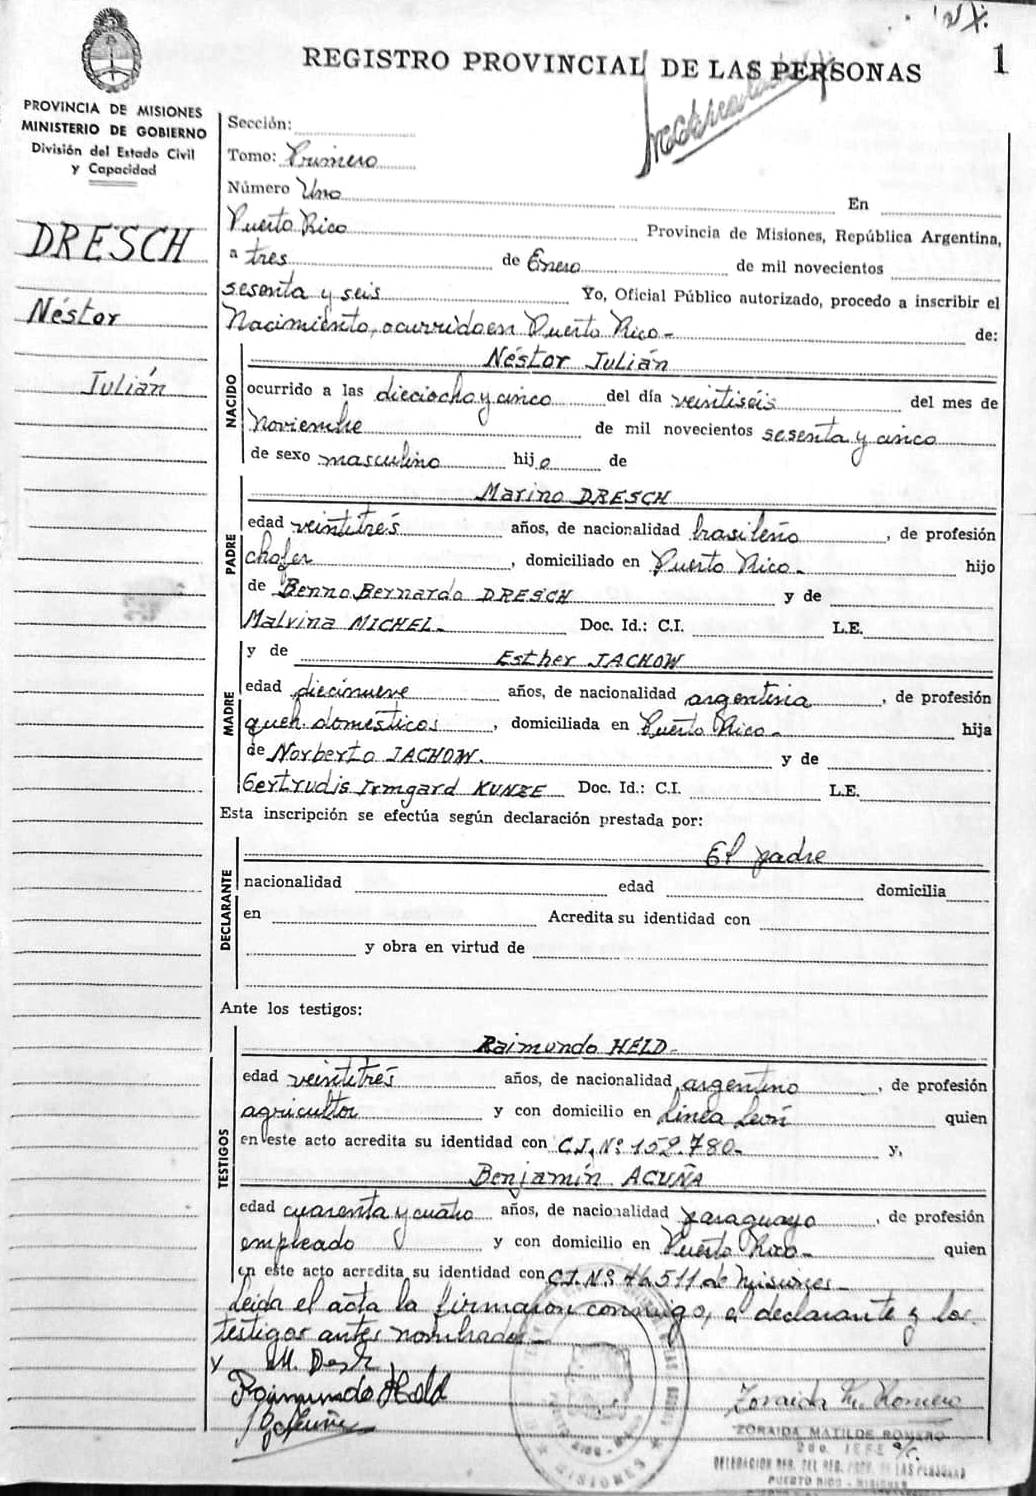 REGISTRO PROVINCIAL DE LAS PERSONAS
1
PROVINCIA DE MISIONES
MINISTERIO DE GOBIERNO
División del Estado Civil
y Capacidad
DRESCH
Néstor
Julián
Sección:
Tomo: Primero
Número Uno En
Puerto Rico Provincia de Misiones, República Argentina,
a tres de Enero de mil novecientos
sesenta y seis Yo, Oficial Público autorizado, procedo a inscribir el
Nacimiento, ocurrido en Puerto Rico- de:
NACIDO
Néstor Julián
ocurrido a las dieciocho y cinco del día veintiséis del mes de
Noviembre de mil novecientos sesenta y cinco
de sexo masculino hijo de
PADRE
Marino DRESCH
edad veintitrés años, de nacionalidad brasileño, de profesión
chofer, domiciliado en Puerto Rico- hijo
de Benno Bernardo DRESCH y de
Malvina MICHEL- Doc. Id.: C.I. L.E.
MADRE
y de Esther JACHOW
edad diecinueve años, de nacionalidad argentina, de profesión
queh. domésticos, domiciliada en Puerto Rico- hija
de Norberto JACHOW. y de
Gertrudis Irmgard KUNZE Doc. Id.: C.I. L.E.
Esta inscripción se efectúa según declaración prestada por:
DECLARANTE
El padre
nacionalidad edad domicilia
en Acredita su identidad con
y obra en virtud de
Ante los testigos:
TESTIGOS
Raimundo HELD-
edad veintitrés años, de nacionalidad argentino, de profesión
agricultor y con domicilio en Línea León quien
en este acto acredita su identidad con C.I. Nº 152.780- y,
Benjamín ACUÑA
edad cuarenta y cuatro años, de nacionalidad paraguayo, de profesión
empleado y con domicilio en Puerto Rico- quien
en este acto acredita su identidad con C.I. Nº 46.511 de Misiones-
Leída el acta la firmaron conmigo, el declarante y los
testigos antes nombrados-
Raimundo Held
Zoraida M. Romero
ZORAIDA MATILDE ROMERO
2do. JEFE a/c.
DELEGACION REG. DEL REG. PROV. DE LAS PERSONAS
PUERTO RICO - MISIONES
MISIONES